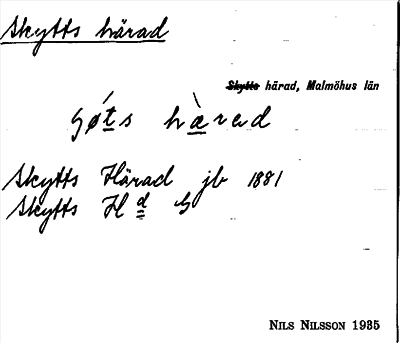 Skytts härad
Skytts härad, Malmöhus län
Skytts Härad jb 1881
Skytts H d
NILS NILSSON 1935